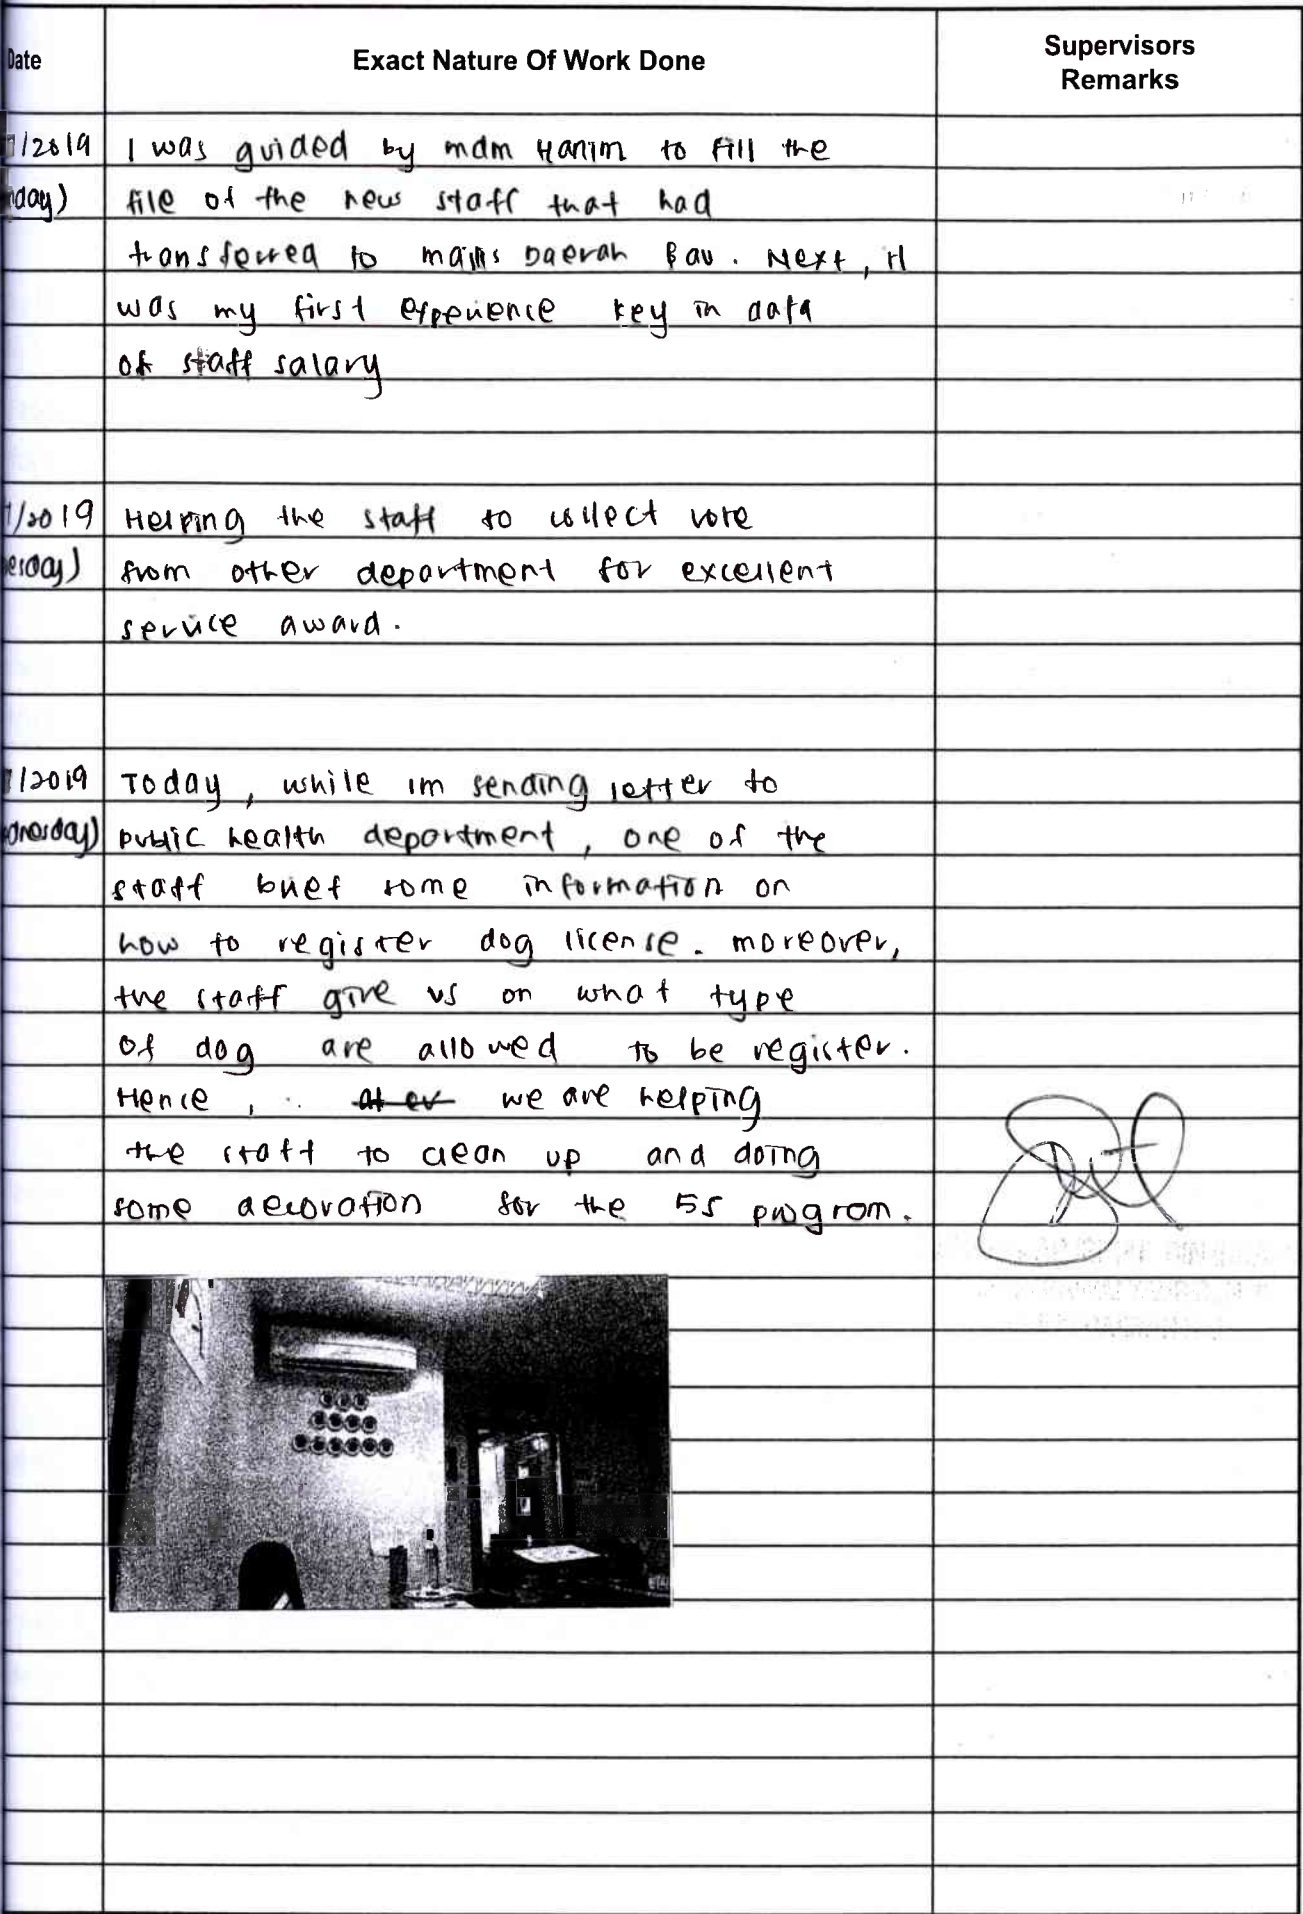 Date Exact Nature Of Work Done Supervisors
Remarks
/2019 I was guided by mdm Hanim to fill the
day) file of the new staff that had
transferred to Daerah Bau. Next, it
was my first experience key in data
of staff salary
/2019 Helping the staff to collect vote
esday) from other department for excellent
service award.
/2019 Today, while im sending letter to
nesday) public health department, one of the
staff brief some information on
how to register dog license. moreover,
the staff give us on what type
of dog are allowed to be register.
Hence, we are helping
the staff to clean up and doing
some decoration for the 5S program.